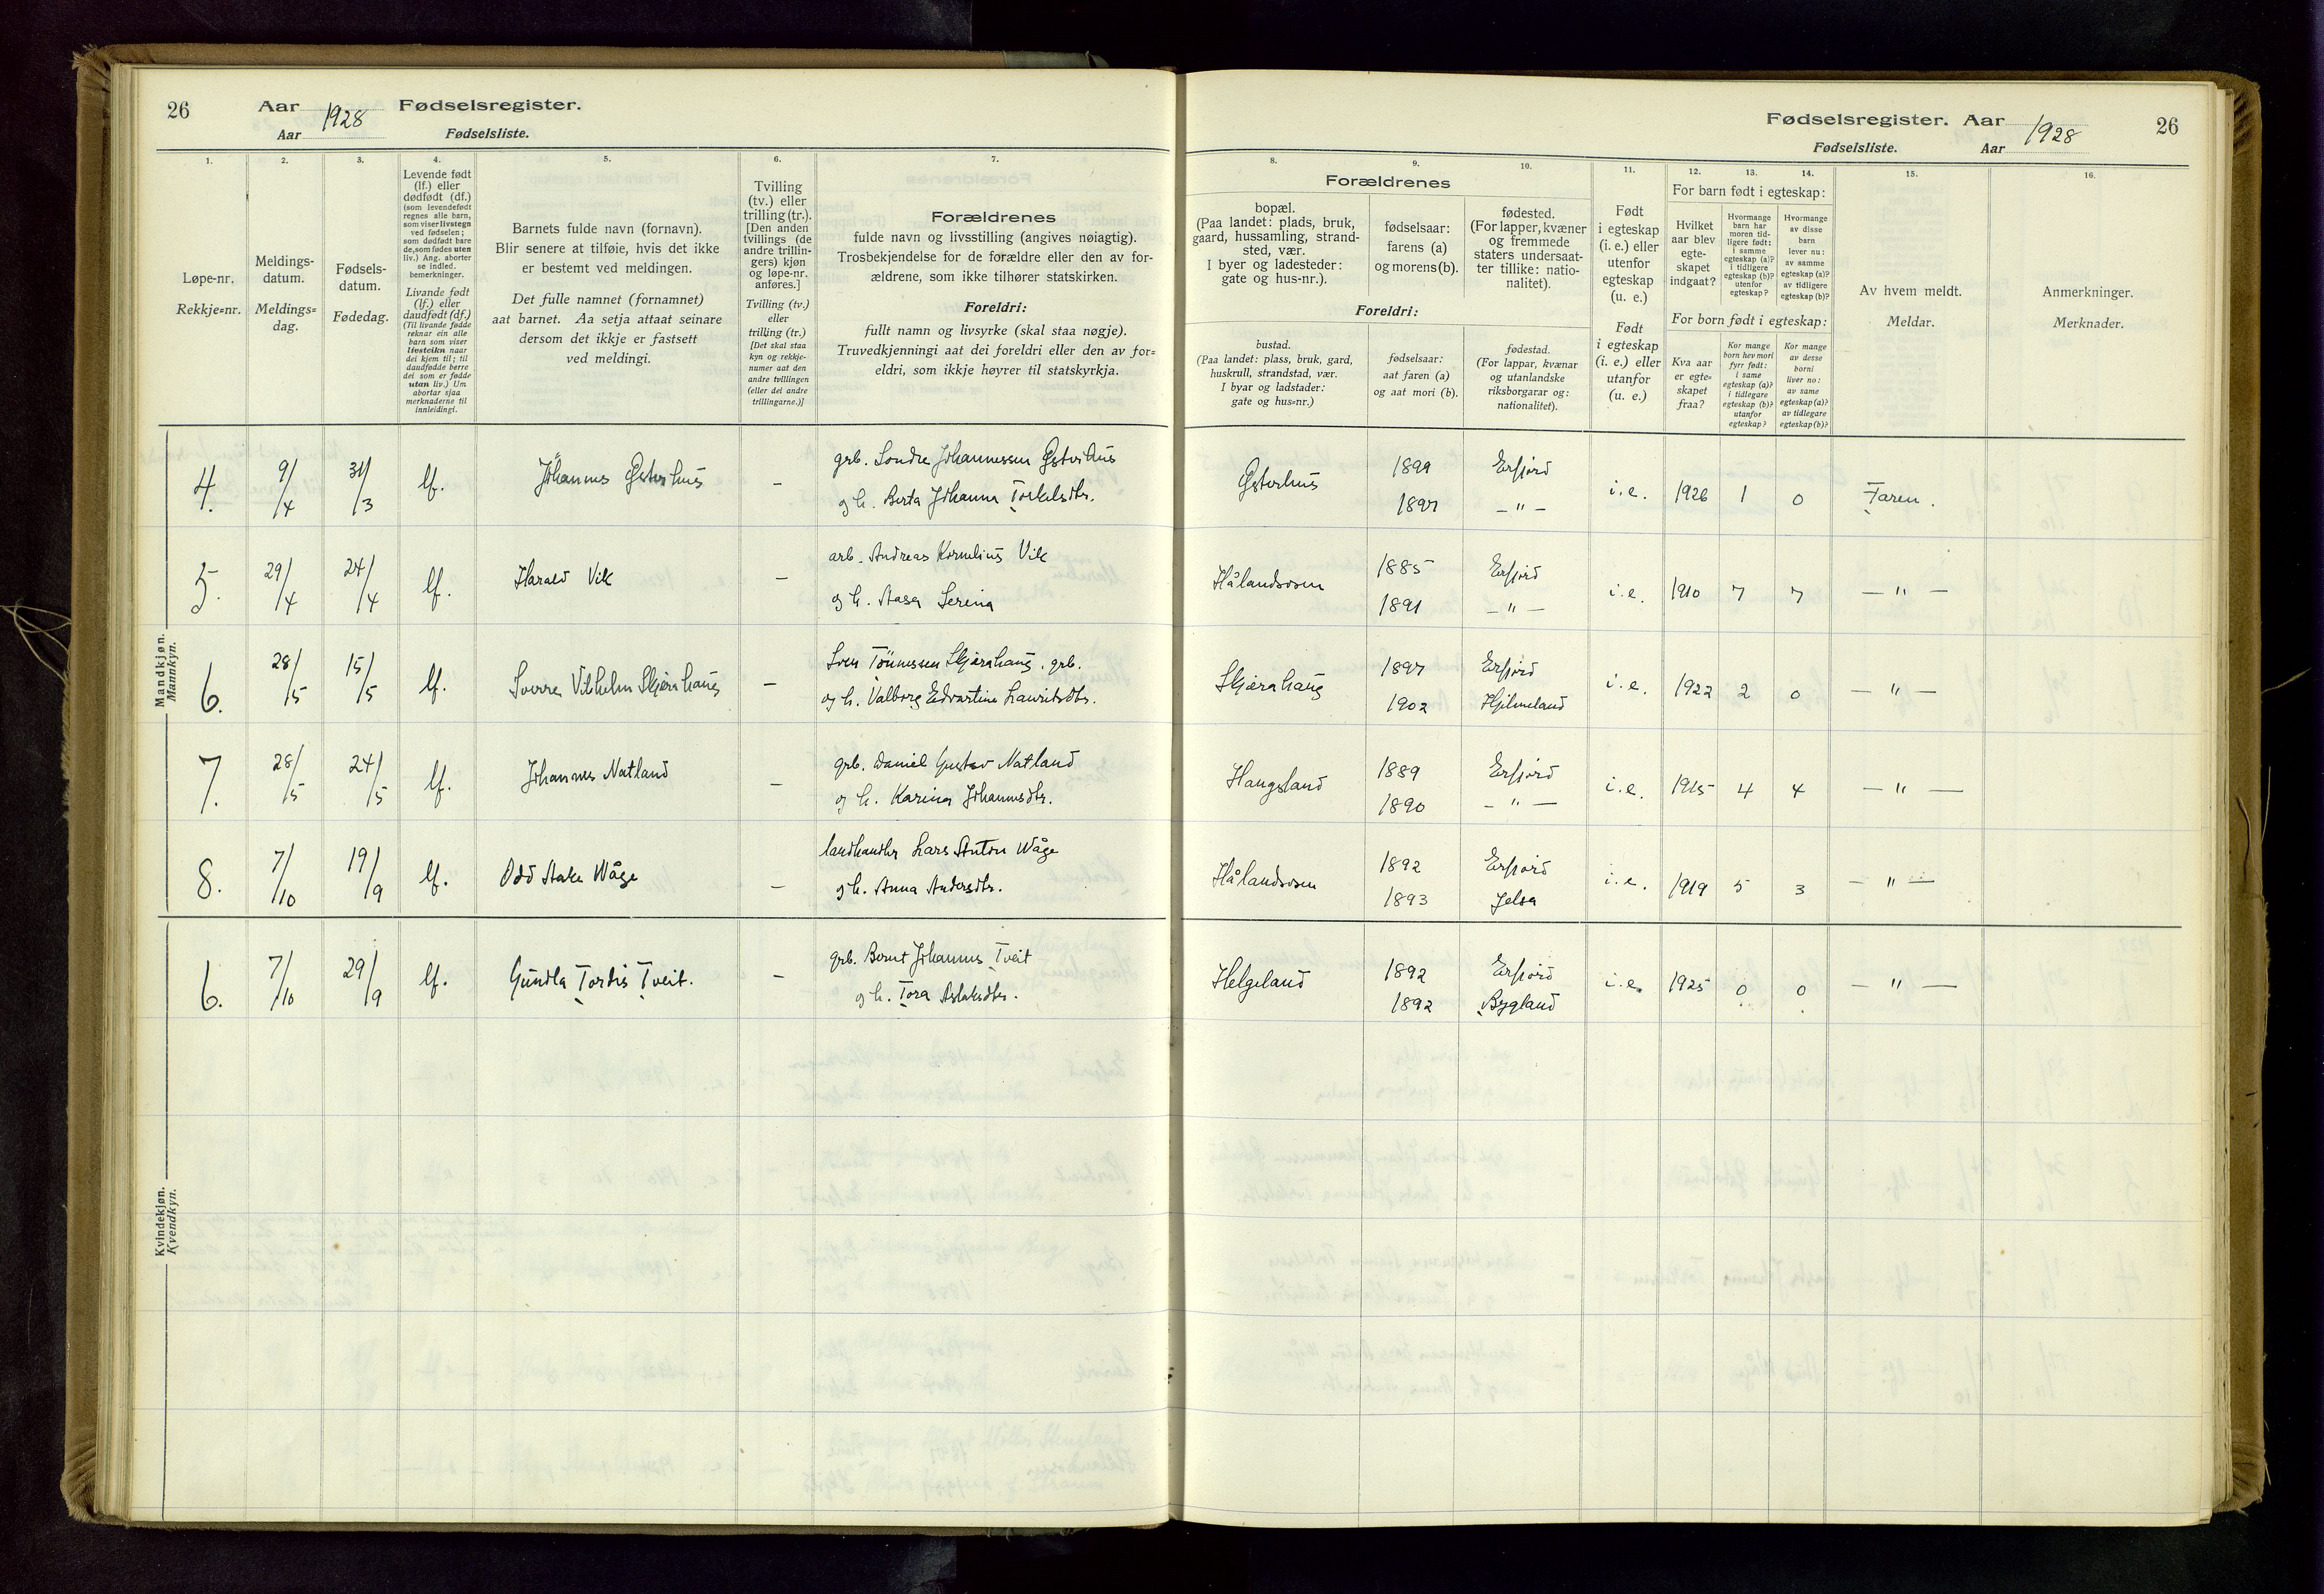 26 Aar 1928 Fødselsregister.
Aar Fødselsliste.
1. 2. 3. 4. 5. 6. 7.
Løpe-nr.
Rekkje=nr.
Meldings-
datum.
Meldings=
dag.
Fødsels-
datum.
Fødedag.
Levende født
(lf.) eller
dødfødt (df.)
(som levendefødt
regnes alle barn,
som viser livstegn
ved fødselen;
som dødfødt bare
de, som fødes uten
liv.) Ang. aborter
se indled.
bemerkninger.
Livande født
(lf.) eller
daudfødt (df.)
(Til livande fødde
reknar ein alle
barn som viser
lifsteikn naar
dei kjem til; til
daudfødde berre
dei som er fødde
utan liv.) Um
abortar sjaa
merknaderne til
innleidingi.
Barnets fulde navn (fornavn).
Blir senere at tilføie, hvis det ikke
er bestemt ved meldingen.
Det fulle namnet (fornamnet)
aat barnet. Aa setja attaat seinare
dersom det ikkje er fastsett
ved meldingi.
Tvilling
(tv.) eller
trilling (tr.).
[Den anden
tvillings (de
andre trillin-
gers) kjøn
og løpe-nr.
anføres.]
Tvilling (tv.)
eller
trilling (tr.)
[Det skal staa
kyn og rekkje-
numer aat den
andre tvillingen
(eller dei andre
trillingarne.)]
Forældrenes
fulde navn og livsstilling (angives nøiagtig).
Trosbekjendelse for de forældre eller den av for-
ældrene, som ikke tilhører statskirken.
Foreldri:
fullt namn og livsyrke (skal staa nøgje).
Truvedkjenningi aat dei foreldri eller den av for=
eldri, som ikkje høyrer til statskyrkja.
Mandkjøn.
Mannkyn.
4. 9/4 31/3 lf. Johannes Østerhus – grb. Sondre Johannessen Østerhus
og h. Berta Johanna Torkelsdtr.
5. 29/4 24/4 lf. Harald Vik – arb. Andreas Kornelius Vik
og h. Aasa Serina
6. 28/5 15/5 lf. Sverre Vilhelm Skjærahaug – Sven Tønnessen Skjærahaug, grb.
og h. Valborg Edvartine Lauritsdtr.
7. 28/5 24/5 lf. Johannes Natland – grb. Daniel Gustav Natland
og h. Karina Johannesdtr.
8. 7/10 19/9 lf. Odd Aake Wåge – landhandler Lars Anton Wåge
og h. Anna Andersdtr.
Kvindekjøn.
Kvendkyn.
6. 7/10 29/9 lf. Gunda Tordis Tveit. – grb. Bernt Johannes Tveit
og h. Tora Aslaksdtr.
Fødselsregister. Aar 1928 26
Fødselsliste. Aar
8. 9. 10. 11. 12. 13. 14. 15. 16.
Forældrenes
bopæl.
(Paa landet: plads, bruk,
gaard, hussamling, strand-
sted, vær.
I byer og ladesteder:
gate og hus-nr.).
fødselsaar:
farens (a)
og morens (b).
fødested.
(For lapper, kvæner
og fremmede
staters undersaat-
ter tillike: natio-
nalitet).
Foreldri:
bustad.
(Paa landet: plass, bruk, gard,
huskrull, strandstad, vær.
I byar og ladstader:
gate og hus=nr.)
fødselsaar:
aat faren (a)
og aat mori (b).
fødestad.
(For lappar, kvænar
og utanlandske
riksborgarar og:
nationalitet).
Født
i egteskap
(i. e.) eller
utenfor
egteskap
(u. e.)
Født
i egteskap
(i. e.) eller
utanfor
(u. e.)
For barn født i egteskap:
Hvilket
aar blev
egte-
skapet
indgaat?
Hvormange
barn har
moren tid-
ligere født:
i samme
egteskap (a)?
i tidligere
egteskap (b)?
utenfor
egteskap?
Hvormange
av disse
barn
lever nu:
av samme
egteskap (a)?
av tidligere
egteskap (b)?
For born født i egteskap:
Kva aar
er egte=
skapet
fraa?
Kor mange
born hev mori
fyrr født:
i same
egteskap (a)?
i tidlegare
egteskap (b)?
utanfor
egteskap?
Kor mange
av desse
borni
liver no:
av same
egteskap (a)?
av tidlegare
egteskap (b)?
Av hvem meldt.
Meldar.
Anmerkninger.
Merknader.
Østerhus 1899 Erfjord i.e. 1926 1 0 Faren.
1897 – " –
Hålandsosen 1885 Erfjord i.e. 1910 7 7 – " –
1891 – " –
Skjærahaug 1897 Erfjord i.e. 1922 2 0 – " –
1902 Hjelmeland
Haugsland 1889 Erfjord i.e. 1915 4 4 – " –
1890 – " –
Hålandsosen 1892 Erfjord i.e. 1919 5 3 – " –
1893 Jelsa
Helgeland 1892 Erfjord i.e. 1925 0 0 – " –
1892 Bygland